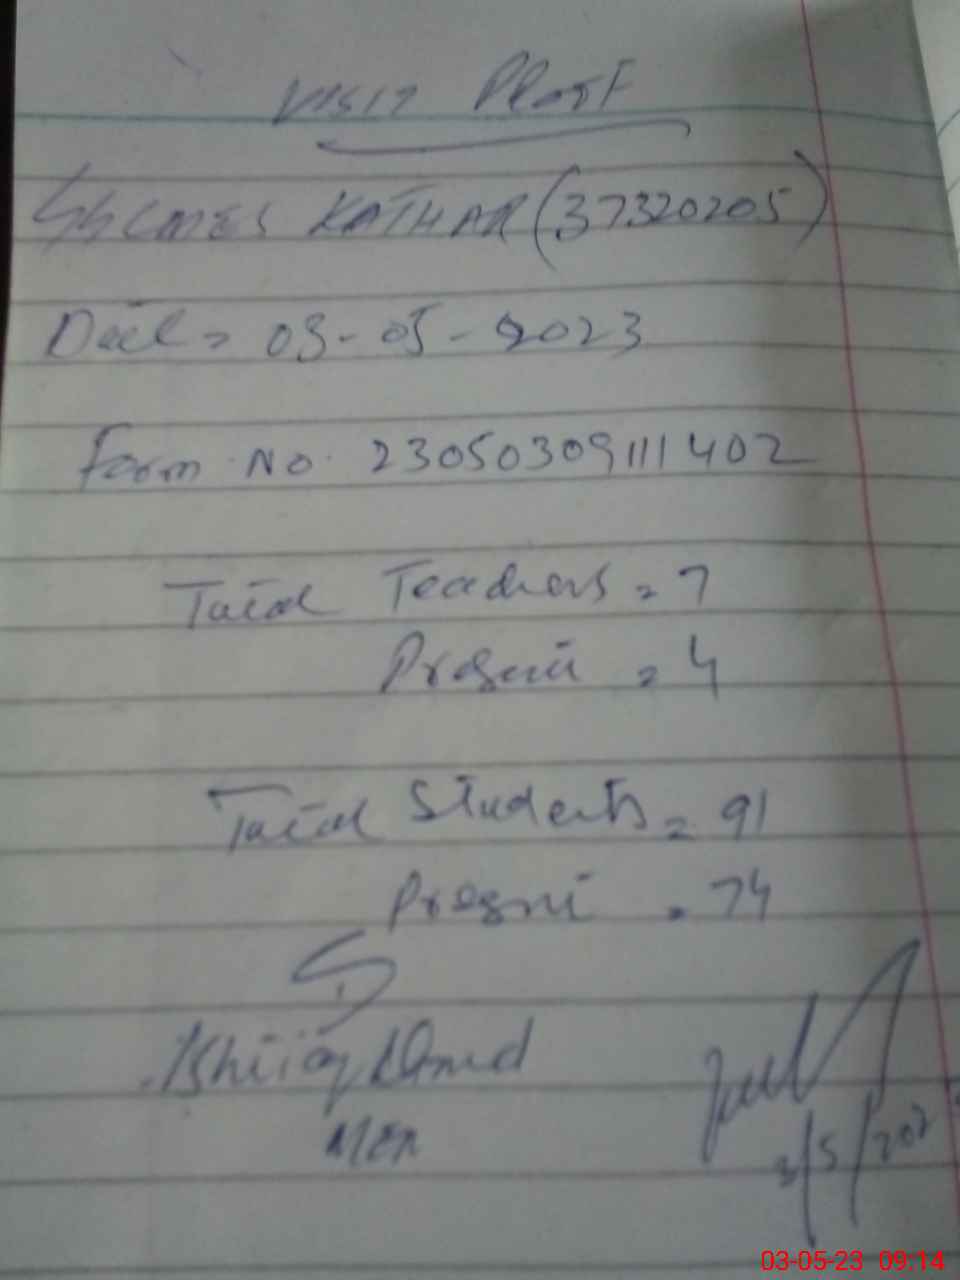 Visit Proof
KATHAR (37320205)
Date = 03-05-2023
Form No. 23050309111402
Total Teachers = 7
Present = 4
Total Students = 91
Present = 74
MEA
03-05-23 09:14